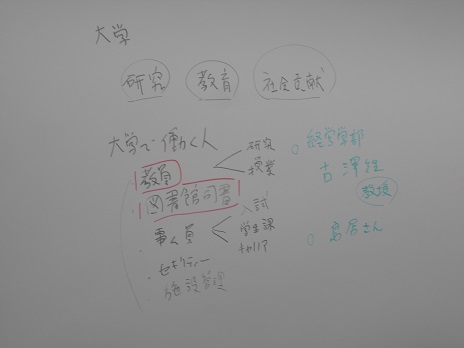 大学
研究 教育 社会貢献
大学で働く人
教員
研究
授業
図書館司書
事ム員
入試
学生課
キャリア
・セキュリティー
施設管理
○ 経営学部
教授
○ 島居さん